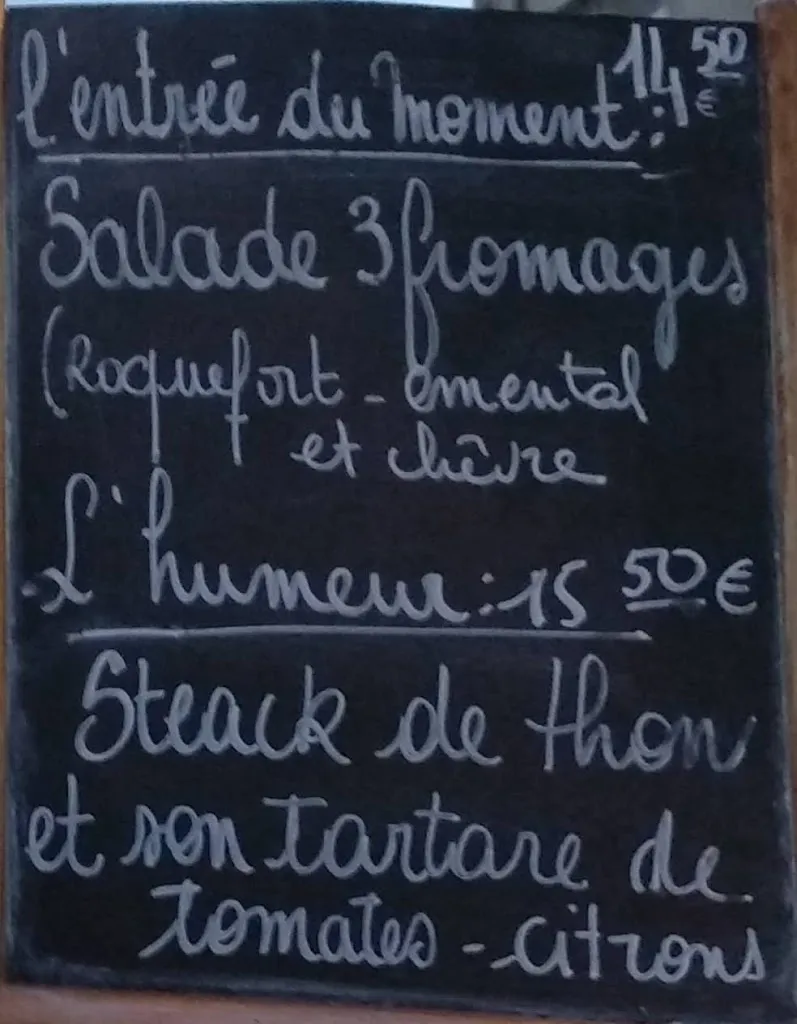 l'entrée du moment : 14 50 €
Salade 3 fromages
(Roquefort - emental
et chêvre
L'humeur : 15 50 €
Steack de thon
et son tartare de
tomates - citrons